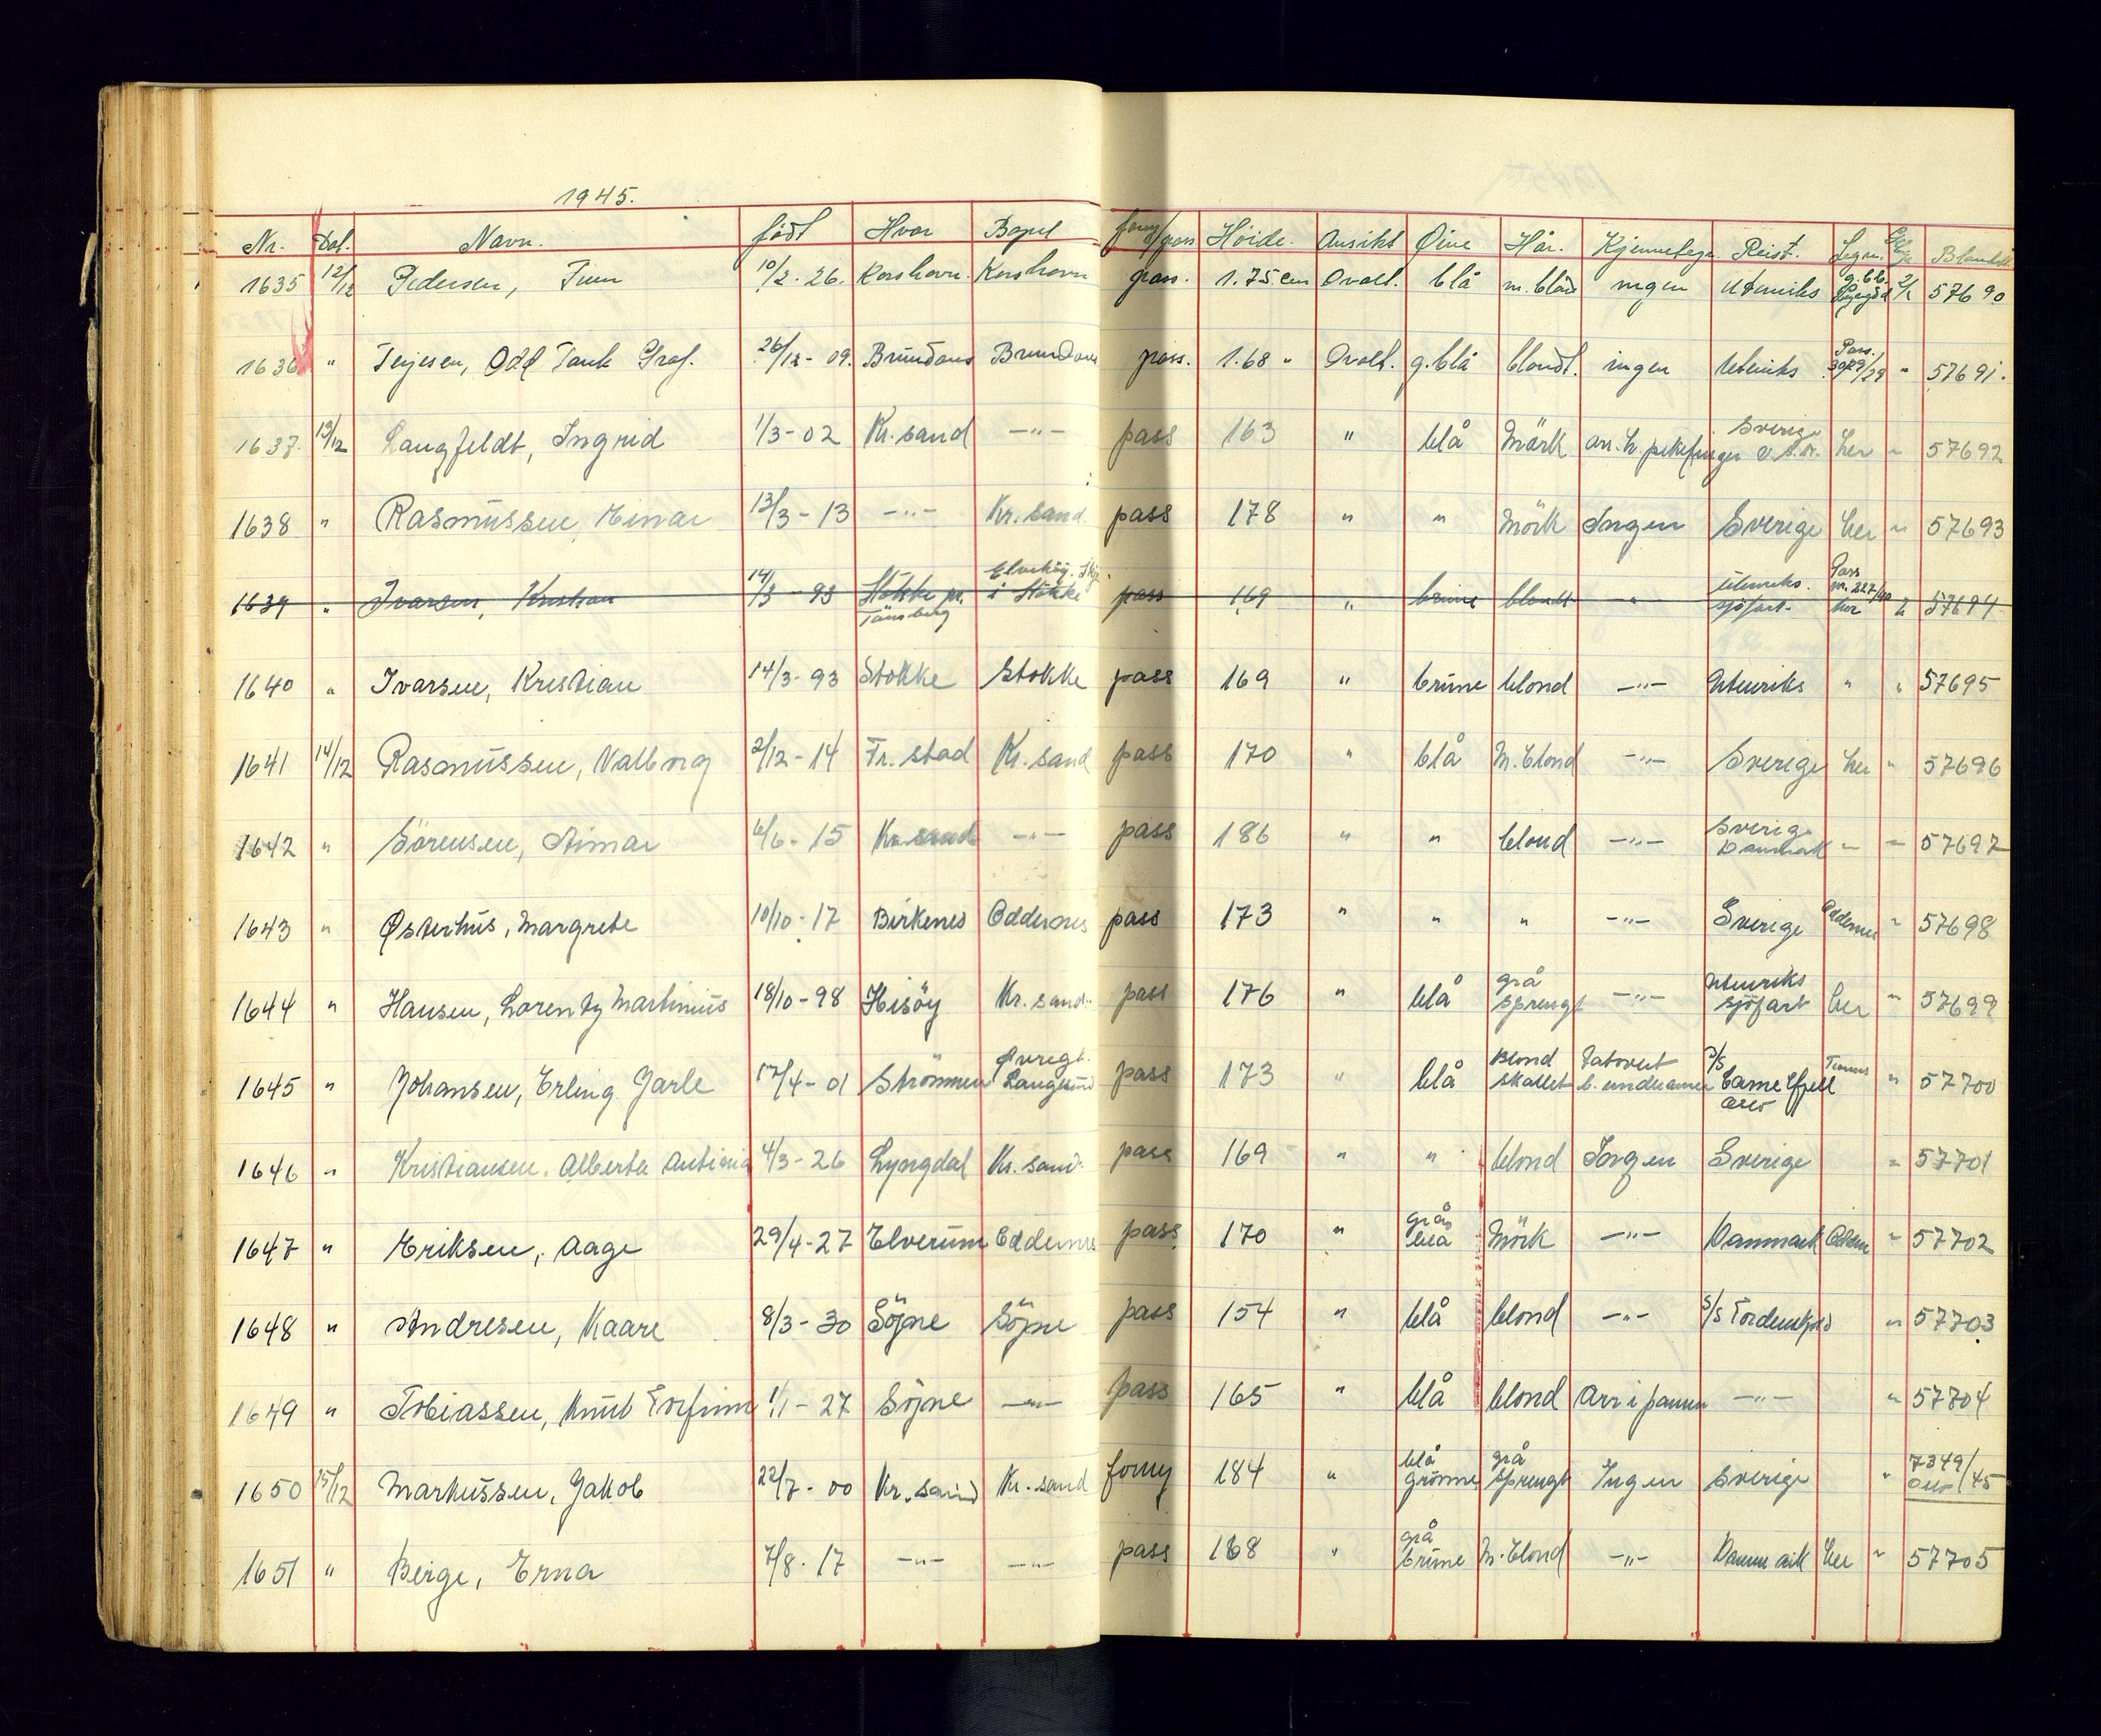 1945.
Nr. Dat. Navn. født Hvor Bopel forny/pass Höide. Ansikt Øine Hår. Kjennetegn Reist. Legm. Blankett
1635 12/12 Pedersen, Finn 10/2-26. Korshavn. Korshavn pass. 1.75 cm Ovalt. blå m. blond ingen Utenriks 2/1 57690
1636 " Terjesen, Odd Tank Graf. 26/12-09. Brundans Brundans pass. 1.68 " Ovalt. g. blå blondt. ingen Utenriks Pass. 3079/29 " 57691.
1637. 13/12 Langfeldt, Ingrid 1/3-02 Kr. sand -"- pass 163 " blå Mörk arr. h. pekefinger Sverige o. s. v. her " 57692
1638 " Rasmussen, Einar 13/3-13 -"- Kr. sand. pass 178 " " Mörk Ingen Sverige her " 57693
1639 " Ivarsen, Kristian 14/3-93 Stokke pr. Tönsberg i Stokke pass 169 " brune blondt " Utenriks. sjöfart. Pass nr. 227/40 her " 57694
1640 " Ivarsen, Kristian 14/3-93 Stokke Stokke pass 169 " brune blond -"- Utenriks " " 57695
1641 14/12 Rasmussen, Valborg 2/12-14 Fr. stad Kr. sand pass 170 " blå M. blond -"- Sverige her " 57696
1642 " Sörensen, Aimar 6/6-15 Kr. sand -"- pass 186 " " blond -"- Sverige Danmark " " 57697
1643 " Østerhus, Margrete 10/10-17 Birkenes Oddernes pass 173 " " " -"- Sverige Oddernes " 57698
1644 " Hansen, Lorentz Martinius 18/10-98 Hisöy Kr. sand. pass 176 " blå grå sprengt -"- Utenriks sjöfart her " 57699
1645 " Johansen, Erling Jarle 17/4-01 Strömmen Övregt. Langesund pass 173 " blå Blond skallet Tatovert b. underarmer " 57700
1646 " Kristiansen. Alberta Antionia 4/3-26 Lyngdal Kr. sand. pass 169 " " blond Ingen Sverige " 57701
1647 " Eriksen, Aage 29/4-27 Elverum Oddernes pass 170 " grå blå Mörk -"- Danmark Oddern " 57702
1648 " Andresen, Kaare 8/3-30 Söjne Söjne pass 154 " blå blond -"- S/S Tordenskjold " 57703
1649 " Tobiassen, Knut Torfinn 1/1-27 Söjne -"- pass 165 " blå blond Arr i pannen -"- " 57704
1650 15/12 Markussen, Jakob 22/7-00 Kr. sand Kr. sand forny 184 " blå grönne grå sprengt Ingen Sverige " 7349/45 Oslo
1651 " Berge, Erna 7/8-17 -"- -"- pass 168 " grå brune M. blond -"- Danmark her " 57705